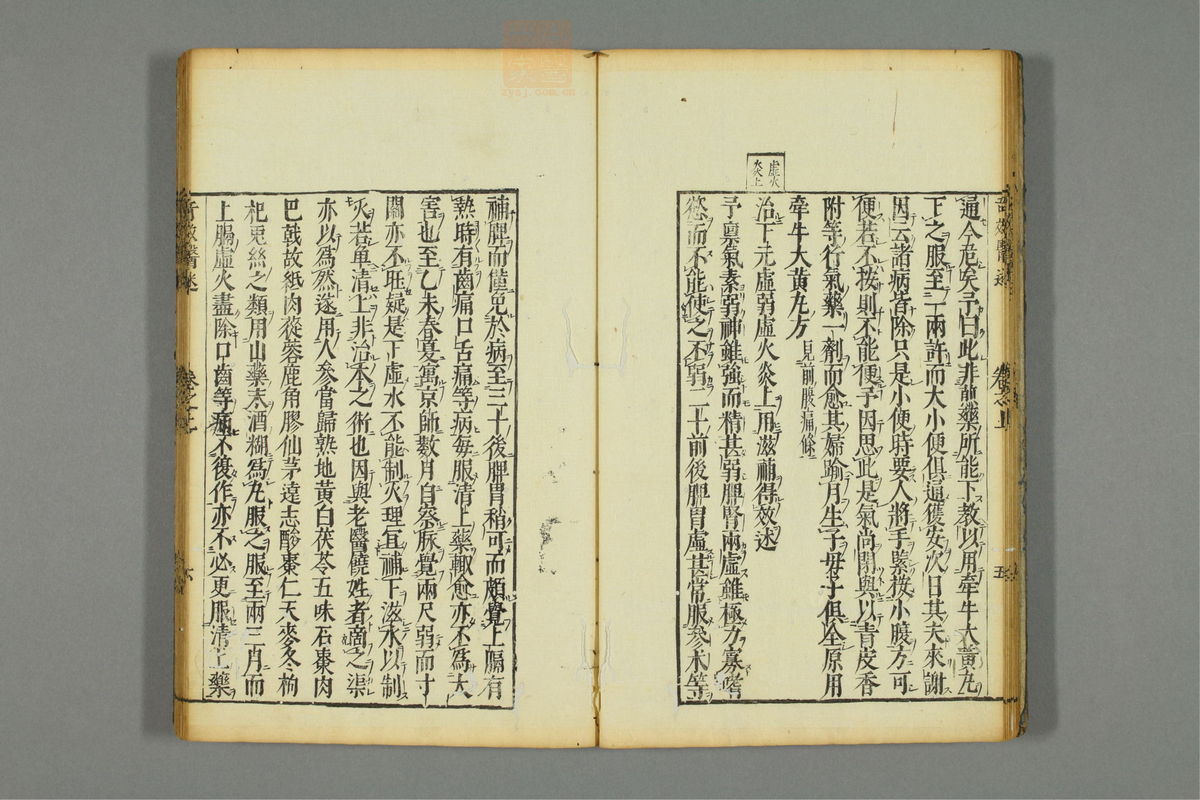 通今危矣予曰此非煎藥所能下教以用牽牛大黄九
下之服至一二兩許而大小便俱通獲安次日其夫來謝
因云諸病皆除只是小便時要人將手緊按小腹方可
便若不按則不能便予因思此是氣尚閉與以青皮香
附等行氣藥一劑而愈其婦踰月生子母子俱全原用
牽牛大黄九方 見前腹痛條
虛火炎上
治下元虛弱虛火炎上用滋補得效述
予稟氣素弱神雖強而精甚弱脾腎兩虛雖極力寡嗜
慾而不能使之不弱二十前後脾胃虛甚常服參术等
奇效醫述 卷之上 五
補脾而僅免於病至三十後脾胃稍可而頗覺上膈有
熱時有齒痛口舌痛等病每服清上藥輙愈亦不為大
害也至乙未春夏寓京師數月自察脉覺兩尺弱而寸
關亦不旺疑是下虛水不能制火理宜補下滋水以制
火若单清上非治本之術也因與老醫饒姓者商之渠
亦以為然遂用人參當歸熟地黄白茯苓五味石棗肉
巴戟故紙肉蓯蓉鹿角膠仙茅遠志酸棗仁天麥冬枸
杞兎絲之類用山藥末酒糊為九服之服至兩三月而
上膈虛火盡除口齒等痛不復作亦不必更服清上藥
奇效醫述 卷之上 六
zysj.com.cn